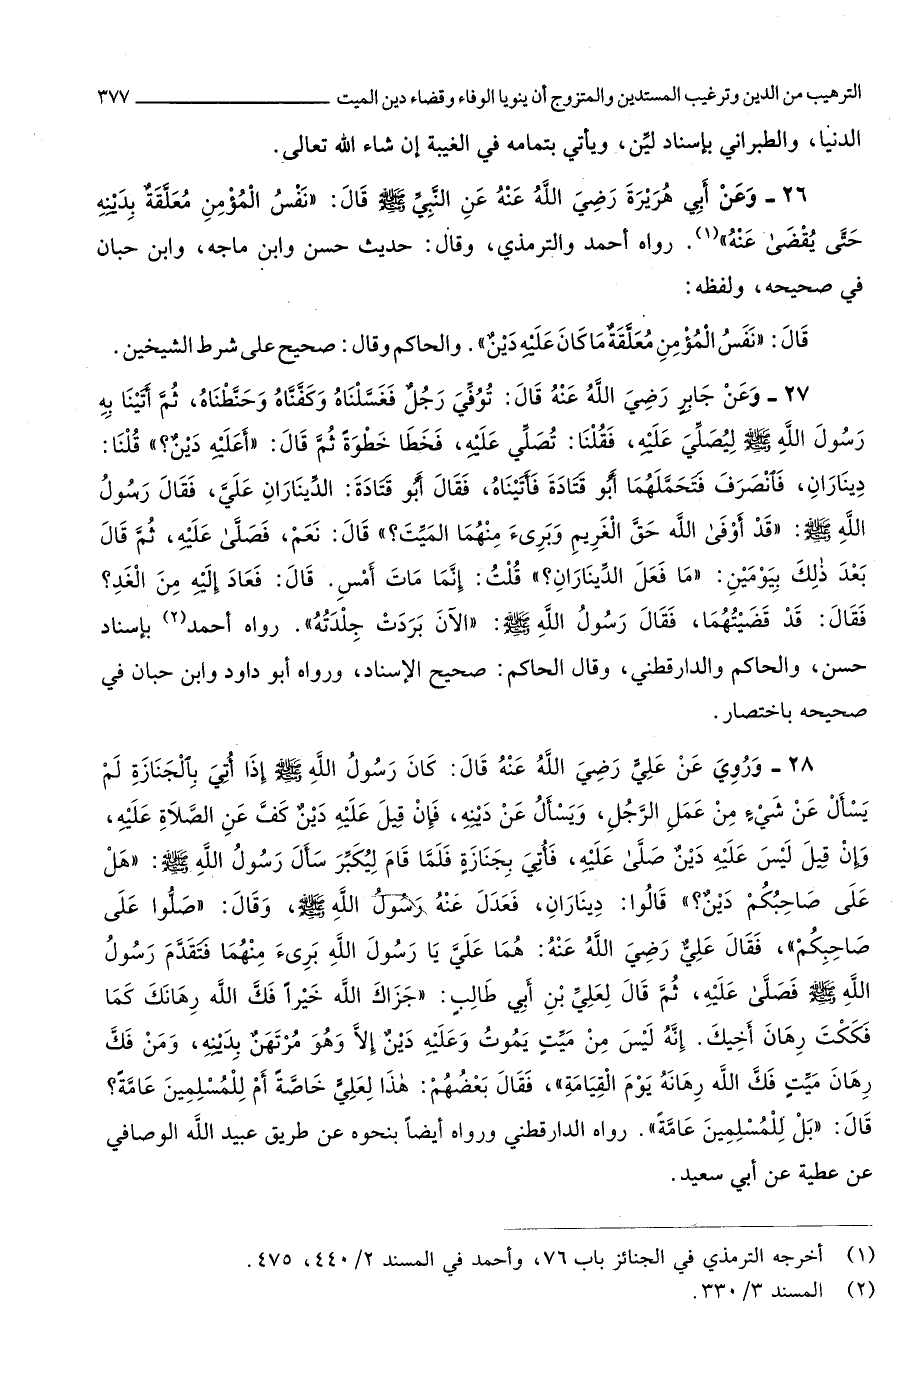 الترهيب من الدين وترغيب المستدين والمتزوج أن ينويا الوفاء وقضاء دين الميت ــــــــــــــــــــ ٣٧٧
الدنيا، والطبراني بإسناد ليّن، ويأتي بتمامه في الغيبة إن شاء الله تعالى.
٢٦ ـ وَعَنْ أَبِي هُرَيْرَةَ رَضِيَ اللَّهُ عَنْهُ عَنِ النَّبِيِّ ﷺ قَالَ: «نَفْسُ الْمُؤْمِنِ مُعَلَّقَةٌ بِدَيْنِهِ
حَتَّى يُقْضَىٰ عَنْهُ»(١). رواه أحمد والترمذي، وقال: حديث حسن وابن ماجه، وابن حبان
في صحيحه، ولفظه:
قَالَ: «نَفَسُ الْمُؤْمِنِ مُعَلَّقَةٌ مَا كَانَ عَلَيْهِ دَيْنٌ». والحاكم وقال: صحيح على شرط الشيخين.
٢٧ ـ وَعَنْ جَابِرٍ رَضِيَ اللَّهُ عَنْهُ قَالَ: تُوُفِّيَ رَجُلٌ فَغَسَّلْنَاهُ وَكَفَّنَّاهُ وَحَنَّطْنَاهُ، ثُمَّ أَتَيْنَا بِهِ
رَسُولَ اللَّهِ ﷺ لِيُصَلِّيَ عَلَيْهِ، فَقُلْنَا: تُصَلِّي عَلَيْهِ، فَخَطَا خَطْوَةً ثُمَّ قَالَ: «أَعَلَيْهِ دَيْنٌ؟» قُلْنَا:
دِينَارَانِ، فَٱنْصَرَفَ فَتَحَمَّلَهُمَا أَبُو قَتَادَةَ فَأَتَيْنَاهُ، فَقَالَ أَبُو قَتَادَةَ: الدِّينَارَانِ عَلَيَّ، فَقَالَ رَسُولُ
اللَّهِ ﷺ: «قَدْ أَوْفَىٰ اللَّه حَقَّ الْغَرِيمِ وَبَرِىءَ مِنْهُمَا المَيِّتَ؟» قَالَ: نَعَمْ، فَصَلَّىٰ عَلَيْهِ، ثُمَّ قَالَ
بَعْدَ ذٰلِكَ بِيَوْمَيْنِ: «مَا فَعَلَ الدِّينَارَانِ؟» قُلْتُ: إِنَّمَا مَاتَ أَمْسِ. قَالَ: فَعَادَ إِلَيْهِ مِنَ الْغَدِ؟
فَقَالَ: قَدْ قَضَيْتُهُمَا، فَقَالَ رَسُولُ اللَّهِ ﷺ: «الآنَ بَرَدَتْ جِلْدَتُهُ». رواه أحمد(٢) بإسناد
حسن، والحاكم والدارقطني، وقال الحاكم: صحيح الإسناد، ورواه أبو داود وابن حبان في
صحيحه باختصار.
٢٨ ـ وَرُوِيَ عَنْ عَلِيٍّ رَضِيَ اللَّهُ عَنْهُ قَالَ: كَانَ رَسُولُ اللَّهِ ﷺ إِذَا أُتِيَ بِالْجَنَازَةِ لَمْ
يَسْأَلْ عَنْ شَيْءٍ مِنْ عَمَلِ الرَّجُلِ، وَيَسْأَلُ عَنْ دَيْنِهِ، فَإِنْ قِيلَ عَلَيْهِ دَيْنٌ كَفَّ عَنِ الصَّلَاةِ عَلَيْهِ،
وَإِنْ قِيلَ لَيْسَ عَلَيْهِ دَيْنٌ صَلَّىٰ عَلَيْهِ، فَأُتِيَ بِجَنَازَةٍ فَلَمَّا قَامَ لِيُكَبِّرَ سَأَلَ رَسُولُ اللَّهِ ﷺ: «هَلْ
عَلَى صَاحِبُكُمْ دَيْنٌ؟» قَالُوا: دِينَارَانِ، فَعَدَلَ عَنْهُ رَسُولُ اللَّهِ ﷺ، وَقَالَ: «صَلُّوا عَلَى
صَاحِبِكُمْ»، فَقَالَ عَلِيٌّ رَضِيَ اللَّهُ عَنْهُ: هُمَا عَلَيَّ يَا رَسُولَ اللَّهِ بَرِىءَ مِنْهُمَا فَتَقَدَّمَ رَسُولُ
اللَّهِ ﷺ فَصَلَّىٰ عَلَيْهِ، ثُمَّ قَالَ لِعَلِيِّ بْنِ أَبِي طَالِبٍ: «جَزَاكَ اللَّه خَيْراً فَكَّ اللَّه رِهَانَكَ كَمَا
فَكَكْتَ رِهَانَ أَخِيكَ. إِنَّهُ لَيْسَ مِنْ مَيِّتٍ يَمُوتُ وَعَلَيْهِ دَيْنٌ إِلاَّ وَهُوَ مُرْتَهَنٌ بِدَيْنِهِ، وَمَنْ فَكَّ
رِهَانَ مَيِّتٍ فَكَّ اللَّه رِهَانَهُ يَوْمَ الْقِيَامَةِ»، فَقَالَ بَعْضُهُمْ: هٰذَا لِعَلِيٍّ خَاصَّةً أَمْ لِلْمُسْلِمِينَ عَامَّةً؟
قَالَ: «بَلْ لِلْمُسْلِمِينَ عَامَّةً». رواه الدارقطني ورواه أيضاً بنحوه عن طريق عبيد اللَّه الوصافي
عن عطية عن أبي سعيد.
(١) أخرجه الترمذي في الجنائز باب ٧٦، وأحمد في المسند ٢/ ٤٤٠، ٤٧٥.
(٢) المسند ٣/ ٣٣٠.